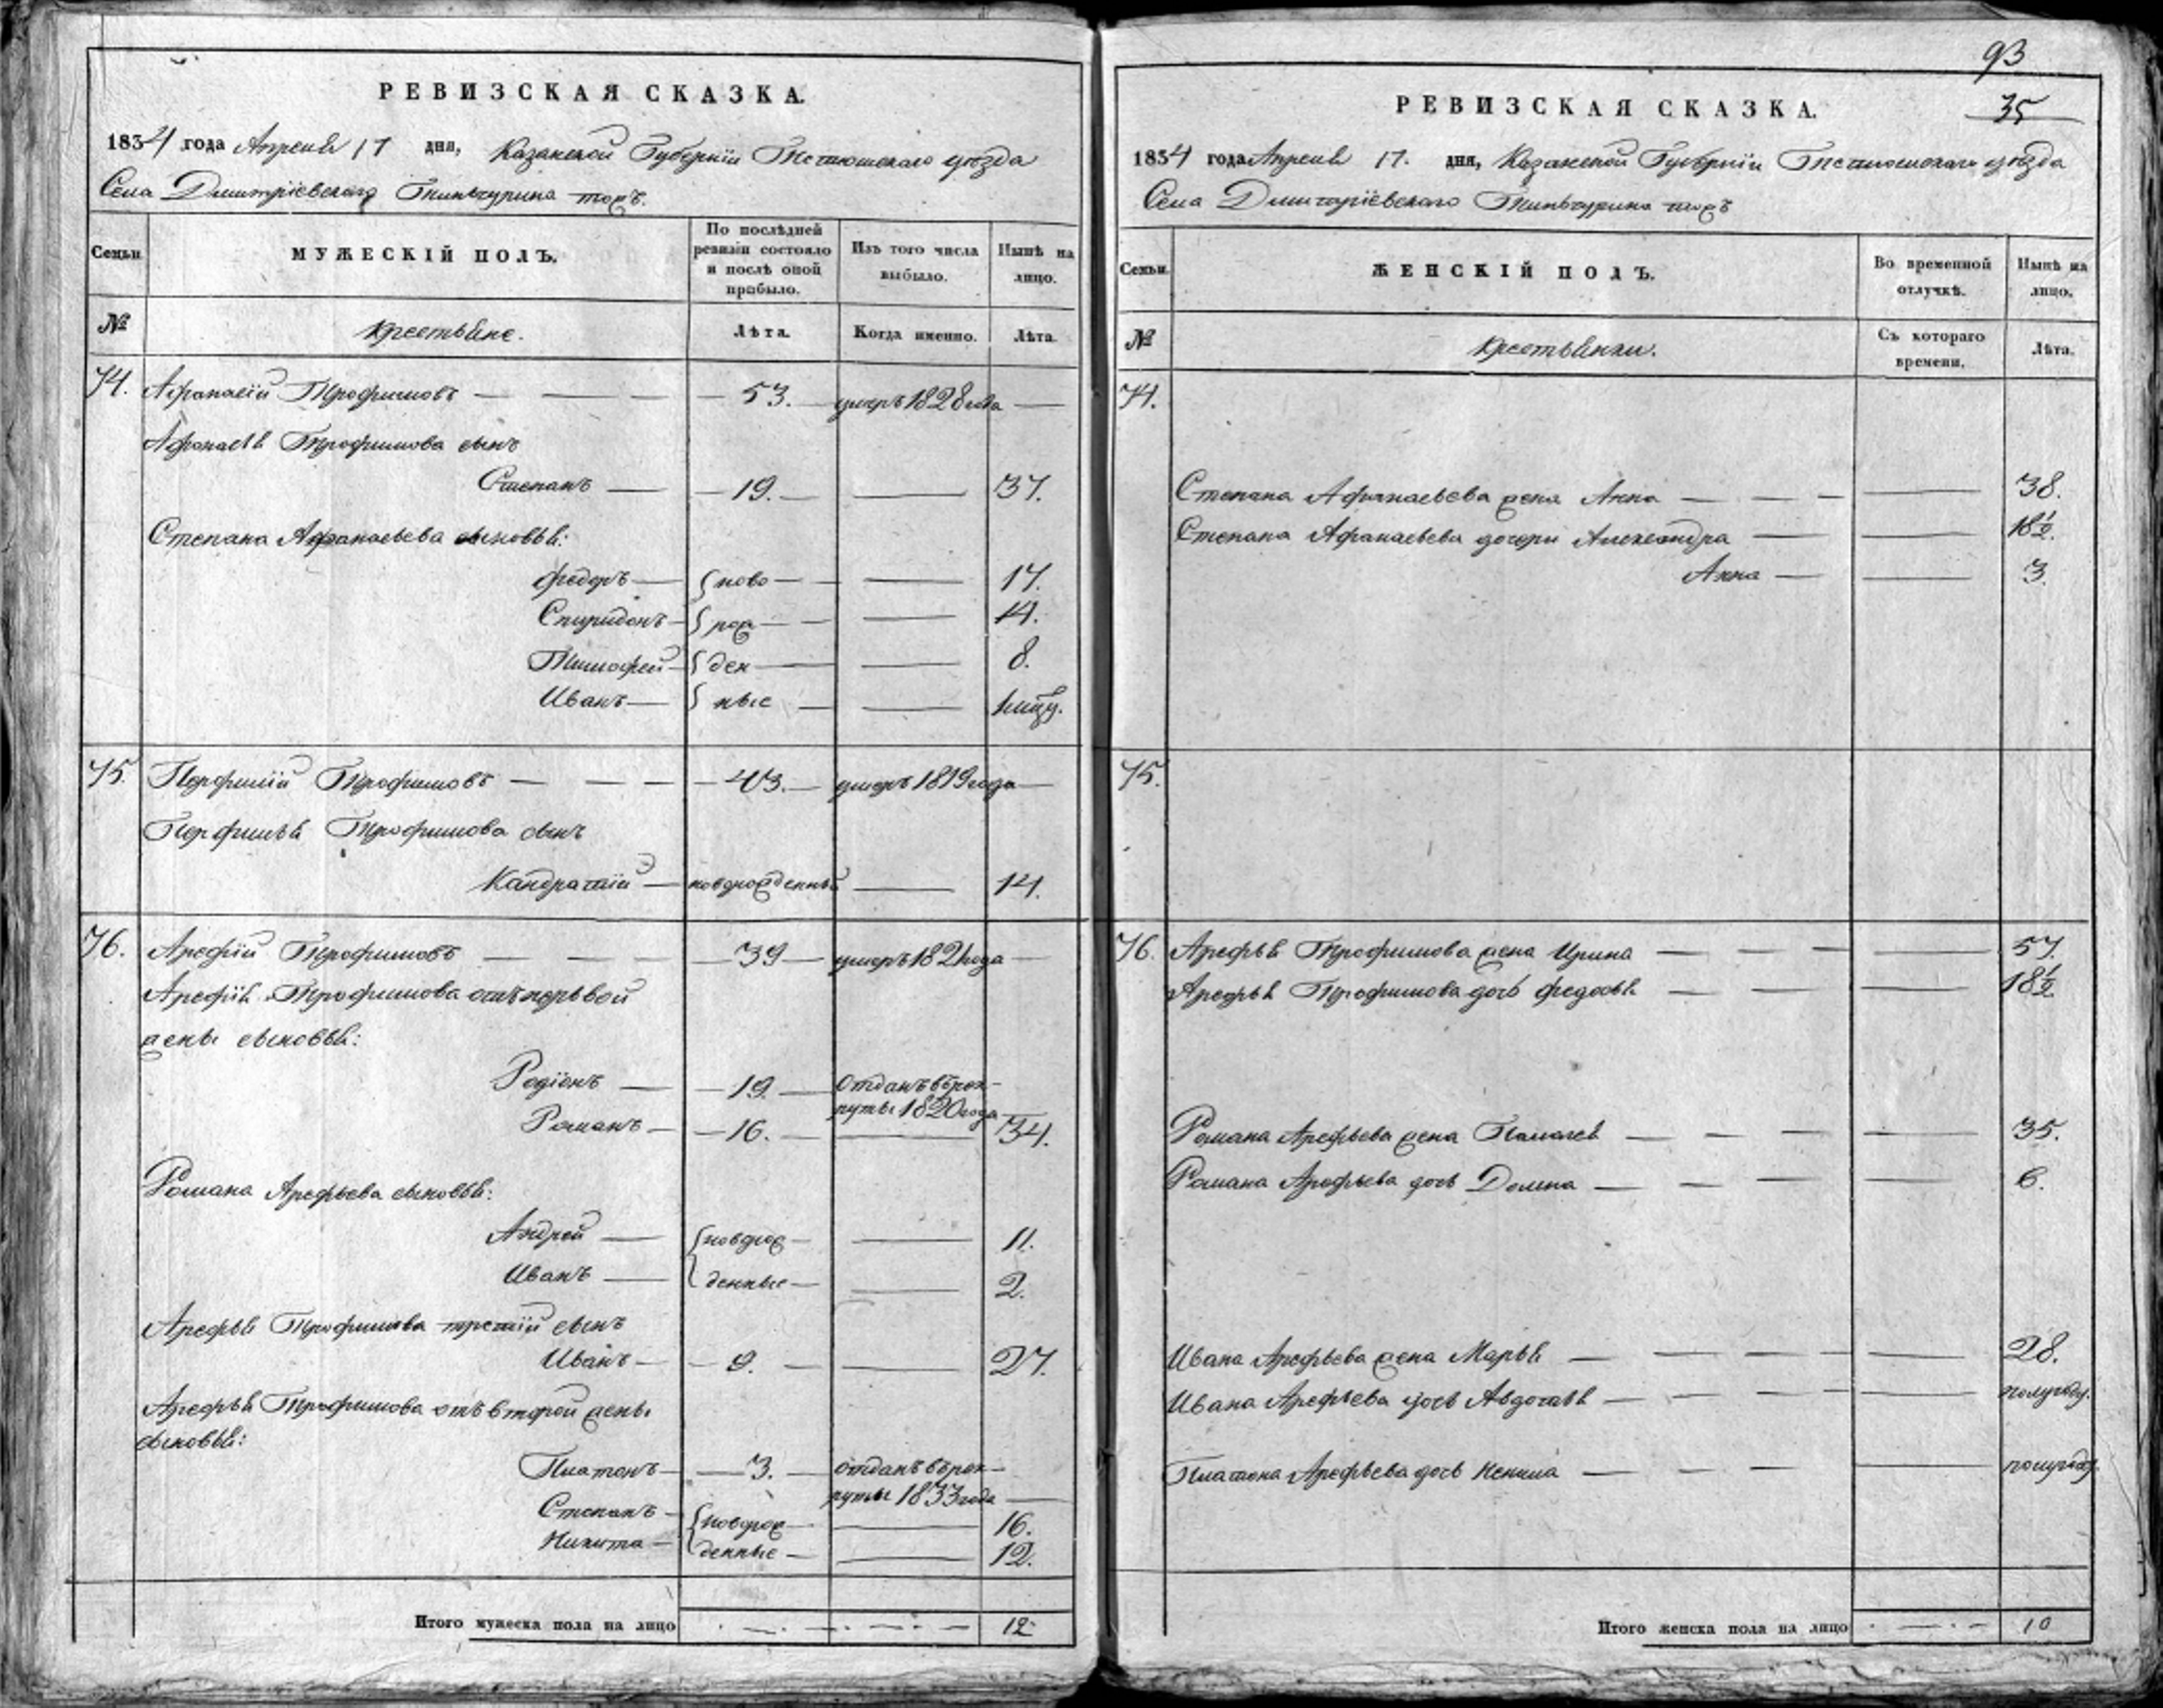 РЕВИЗСКАЯ СКАЗКА.
1834 года Апреля 17 дня, Казанской Губернїи Тетюшскаго уѣзда
Села Дмитрїевскаго Тинчурина тожъ.
Семьи
МУЖЕСКІЙ ПОЛЪ.
По послѣдней ревизіи состояло и послѣ оной прибыло.
Изъ того числа выбыло.
Нынѣ на лицо.
№
Крестьяне.
Лѣта.
Когда именно.
Лѣта.
74. Афанасїй Трофимовъ — 53. — умеръ 1828 года —
Афанасья Трофимова сынъ
Степанъ — 19. — 37.
Степана Афанасьева сыновья:
Федоръ — ново — 17.
Спиридонъ — рож — 14.
Тимофей — ден — 8.
Иванъ — ные —
75. Перфилїй Трофимовъ — 43. — умеръ 1819 года —
Перфилья Трофимова сынъ
Кандратїй — новорожденный — 14.
76. Арефїй Трофимовъ — 39 — умеръ 1821 года —
Арефїя Трофимова отъ первой
жены сыновья:
Родїонъ — 19. — отданъ въ рек-
руты 1820 года —
Романъ — 16. — 34.
Романа Арефьева сыновья:
Андрей — новорож — 11.
Иванъ — денные — 2.
Арефья Трофимова третїй сынъ
Иванъ — 9. — 27.
Арефья Трофимова отъ второй жены
сыновья:
Платонъ — 3. — отданъ въ рек-
руты 1833 года —
Степанъ — новорож — 16.
Никита — денные — 12.
Итого мужеска пола на лицо 12
93
35
РЕВИЗСКАЯ СКАЗКА.
1834 года Апреля 17. дня, Казанской Губернїи Тетюшскаго уѣзда
Села Дмитрїевскаго Тинчурина тожъ
Семьи.
ЖЕНСКІЙ ПОЛЪ.
Во временной отлучкѣ.
Нынѣ на лицо.
№
Крестьянки.
Съ котораго времени.
Лѣта.
74.
Степана Афанасьева жена Анна — 38.
Степана Афанасьева дочери Александра — 18½.
Анна — 3.
75.
76. Арефья Трофимова жена Ирина — 57.
Арефья Трофимова дочь Федосья — 18½
Романа Арефьева жена Палагея — 35.
Романа Арефьева дочь Домна — 6.
Ивана Арефьева жена Марья — 28.
Ивана Арефьева дочь Авдотья — полугоду.
Платона Арефьева дочь Ксения — полугоду.
Итого женска пола на лицо 10